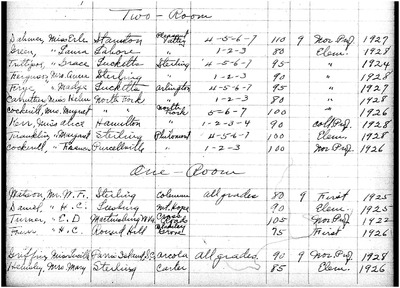 Two-Room
Dahmer, Miss Erle Staunton Pleasant Valley 4-5-6-7 110 9 Nor. Prof. 1927
Green, " Laura Lahore " 1-2-3 80 Elem. 1928
" Grace Lucketts Sterling 4-5-6-7 95 " 1924
Ferguson, Mrs. Anne Sterling " 1-2-3 90 " 1928
Frye, " Madge Lucketts Arlington 4-5-6-7 95 " 1927
Carruthers, Miss Helen North Fork " 1-2-3 80 " 1928
Cockerill, Mrs. Margaret " North Fork 5-6-7 100 " 1926
Kerr, Miss Alice Hamilton " 1-2-3-4 90 Coll. Prof. 1928
Franklin, " Margaret Sterling Philomont 4-5-6-7 100 Elem. 1928
Cockerill, " Purcellville " 1-2-3 100 Nor. Prof. 1926
One-Room
Mr. N. F. Sterling Columns All grades 80 9 First 1925
Daniel, " H. C. Leesburg Mt. Hope 90 Elem. 1925
Turner, " E. D. Martinsburg W. Va. Cross Roads 105 Nor. Prof. 1922
" H. C. Round Hill Grove 75 First 1926
Griffin, Miss Lucille Paris Island, S.C. Arcola All grades 90 9 Nor. Prof. 1928
Mrs. Mary Sterling Carter 85 Elem. 1926